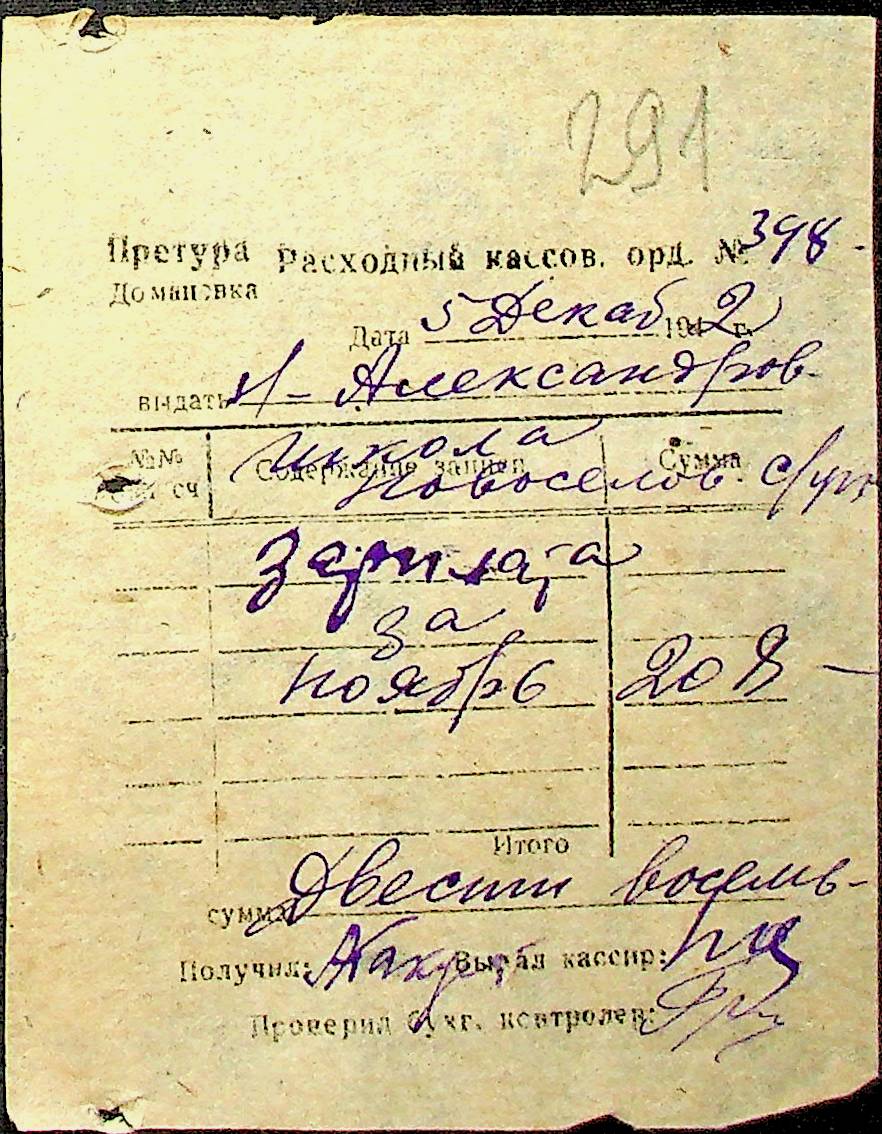 291
Претура Расходный кассов. орд. № 398-
Домановка
Дата 5 Декаб 1942 г.
выдать Н-Александров-
школа
№№ Содержание записи Сумма
сч Новоселов. с/уп
Зарплата
за
ноябрь 208 —
Итого
сумма Двести восемь-
Получил: Выдал кассир:
Проверил бухг. контролер: